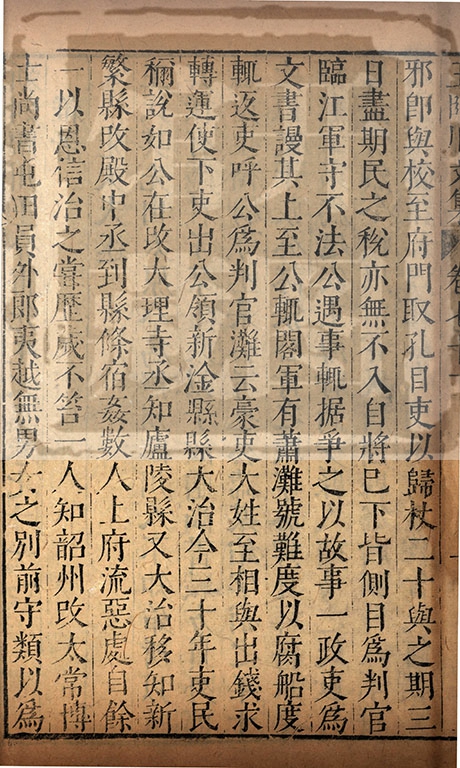 邪卽與校至府門取孔目吏以歸杖二十與之期三
日盡期民之稅亦無不入自將巳下皆側目爲判官
臨江軍守不法公遇事輙据爭之以故事一政吏爲
文書謾其上至公輙閣軍有蕭灘號難度以腐船度
輙返吏呼公爲判官灘云豪吏大姓至相與出錢求
轉運使下吏出公領新淦縣縣大治今三十年吏民
稱說如公在改大理寺丞知廬陵縣又大治移知新
繁縣改殿中丞到縣條宿姦數人上府流惡處自餘
一以恩信治之嘗歷歲不笞一人知韶州改太常博
士尚書屯田員外郎夷越無男女之別前守類以爲